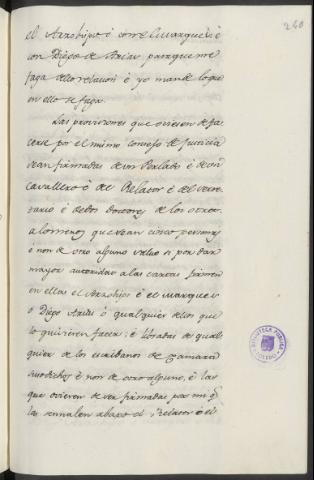 260
el Arzobispo é con el Marqués é
con Diego de Arias para que me
faga dello relacion é yo mande lo que
en ello se faga.
Las provisiones que ovieren de fa
cerse por el mismo consejo de justicia
sean firmadas de un Perlado é de un
cavallero é del Relator é del secre
tario é de dos doctores de los otros
a lo menos que sean cinco personas
é non de otro alguno salvo si por dar
mayor autoridad a las cartas firmen
en ellas el Arzobispo é el Marques
o Diego Arias ó qualquier dellos que
lo quisieren facer: é libradas de qual
quier de los escribanos de Camara
susodichos é non de otro alguno, é las
que ovieren de ser firmadas por mi q
las señalen abaxo el Relator é el
BIBLIOTECA PUBLICA
TOLEDO